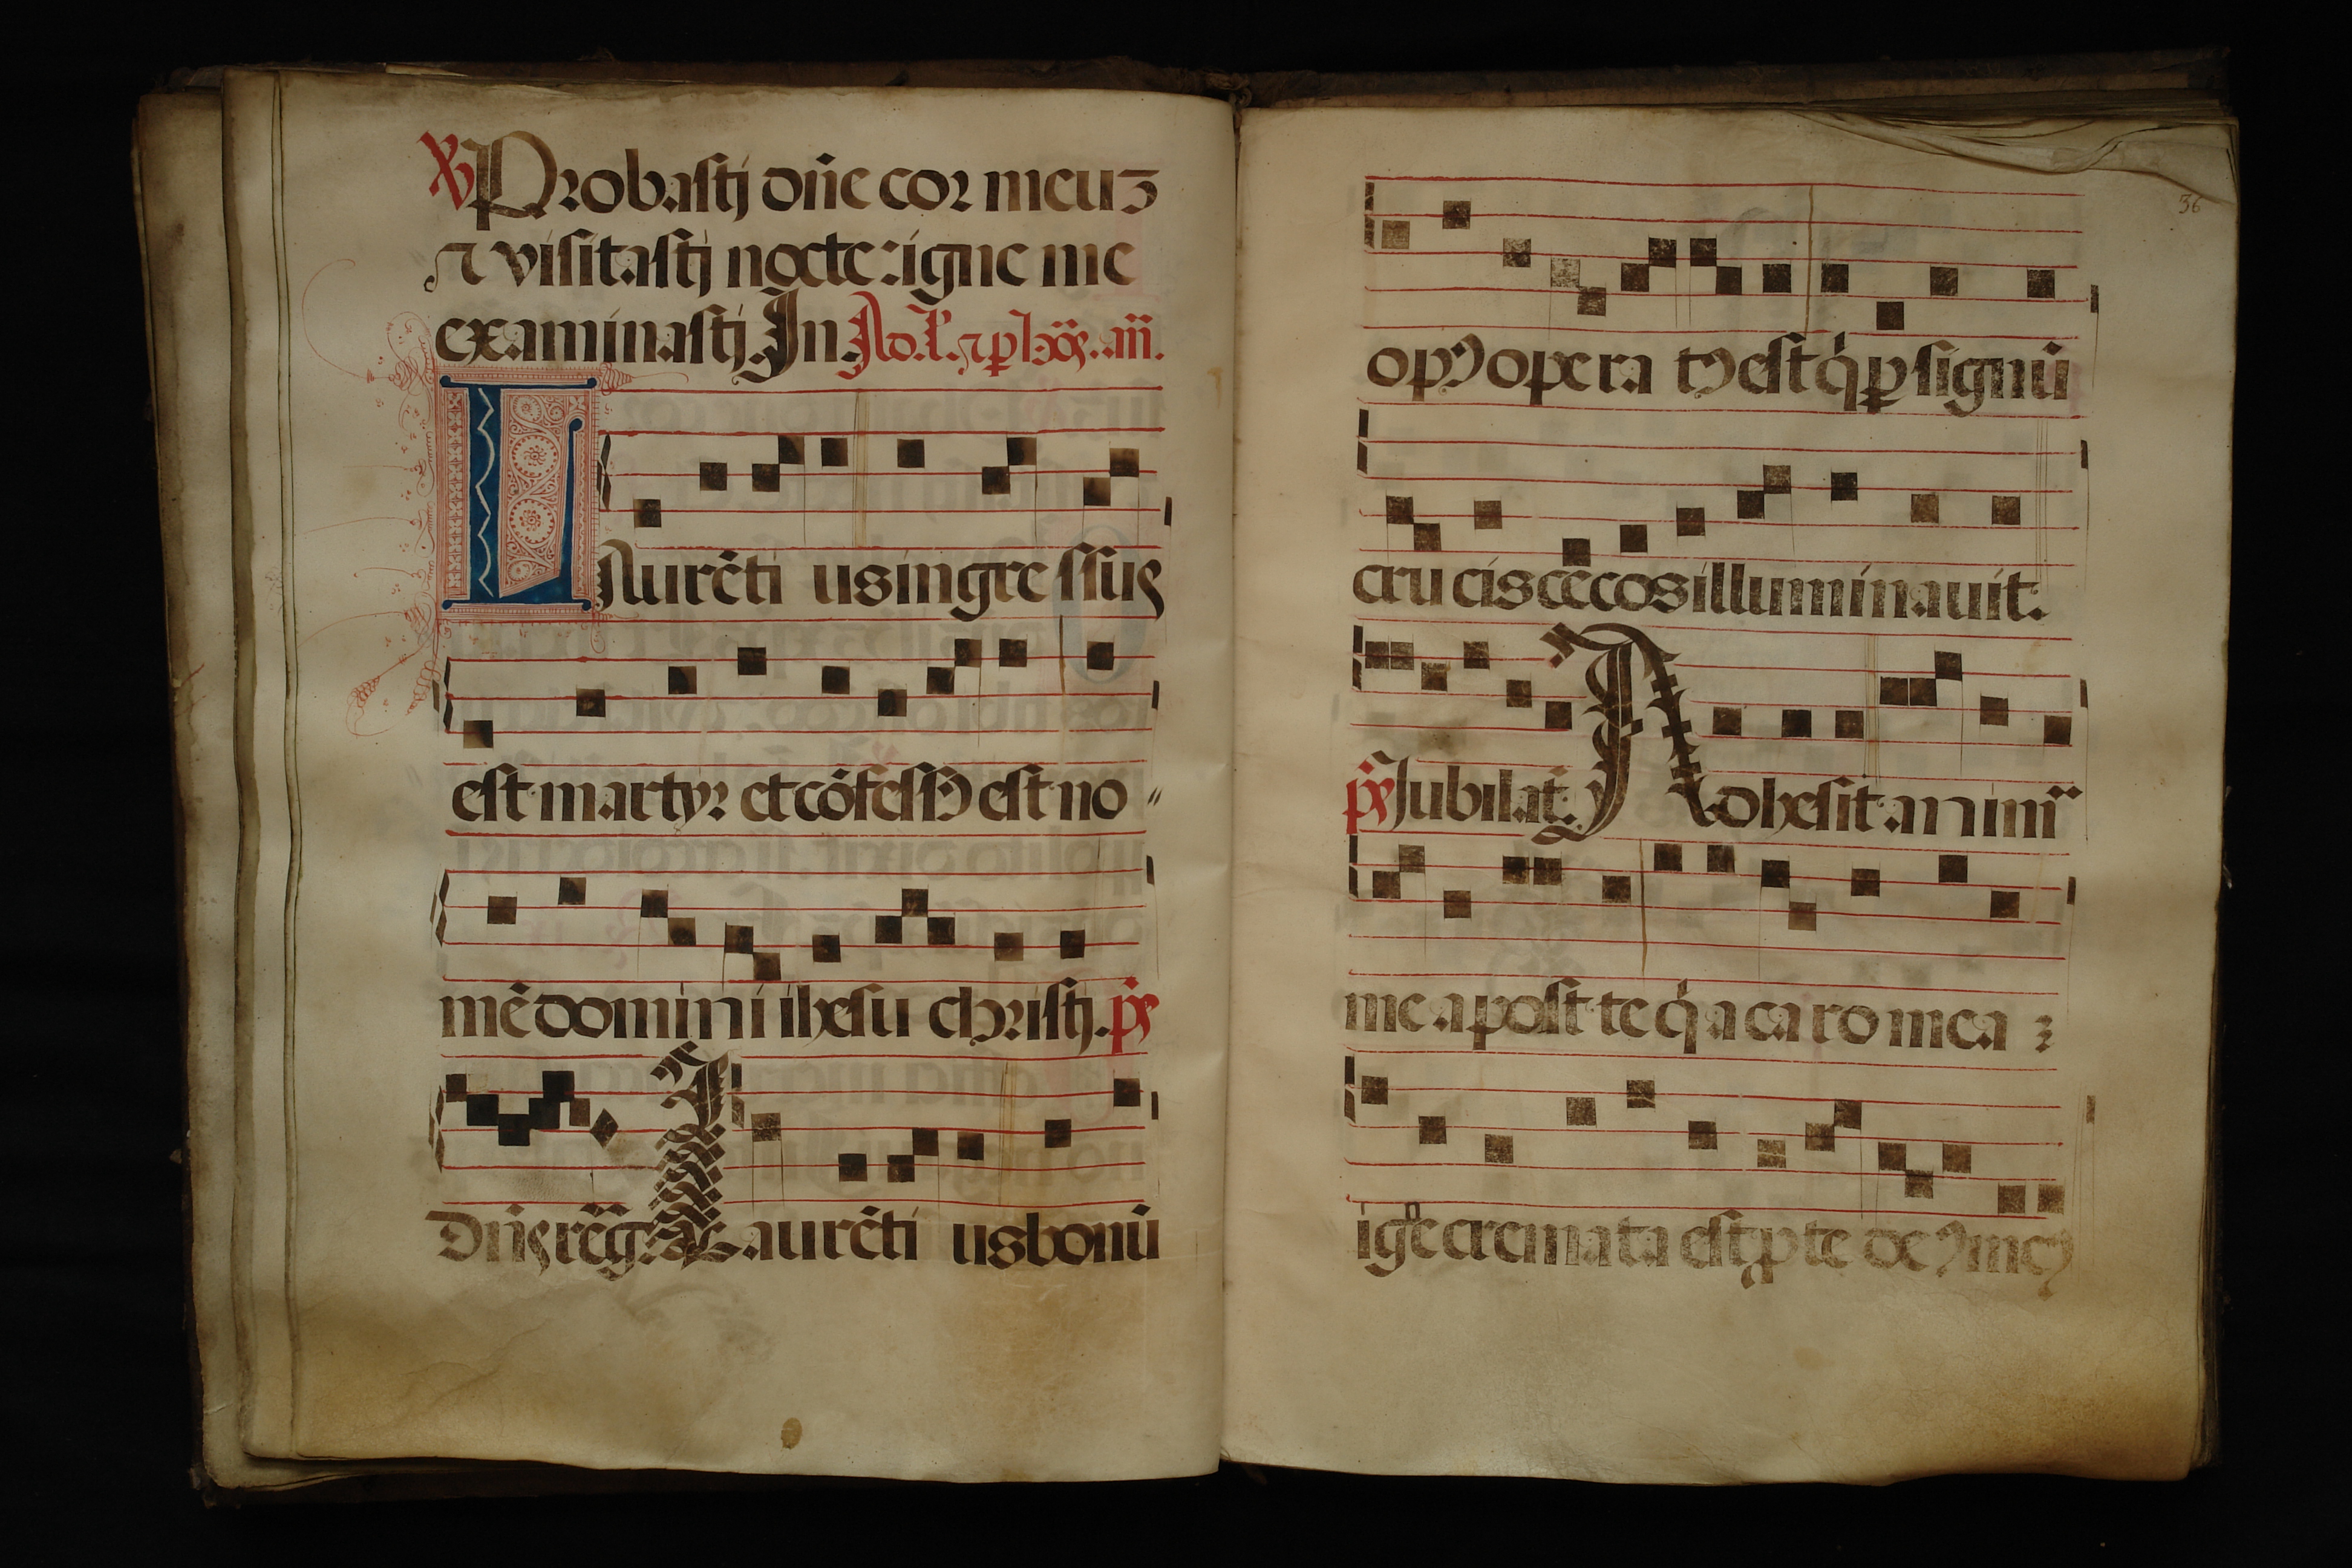 ℣ Probasti dn̄e cor meuʒ
⁊ visitasti nocte: igne me
examinasti. In. Ad. L. ⁊ p hōs. an̄.
Laurēti us ingre ssus
est martyr et cōfess⁹ est no
mē domini ihesu christi. ps̄
Dn̄s reḡ. Laurēti us bonū
36
op⁹ opera t⁹ est q̇ ꝑ signū
cru cis cēcos illuminauit.
ps̄ Jubilat. Adhesit anim
me a post te q̇a caro mea
igne cremata est p te de⁹ me⁹